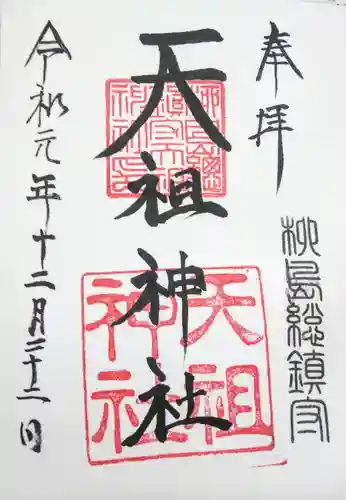 奉拝
柳島総鎮守
天祖神社
天祖神社
令和元年十二月二十二日